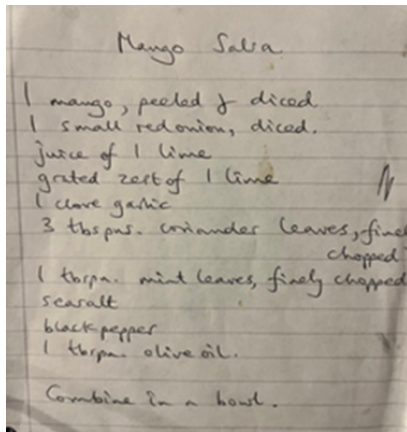 Mango Salsa
1 mango, peeled & diced
1 small red onion, diced.
juice of 1 lime
grated zest of 1 lime
1 clove garlic
3 tbspns. coriander leaves, fine
chopped
1 tbspn. mint leaves, finely chopped
seasalt
black pepper
1 tbspn. olive oil.
Combine in a bowl.